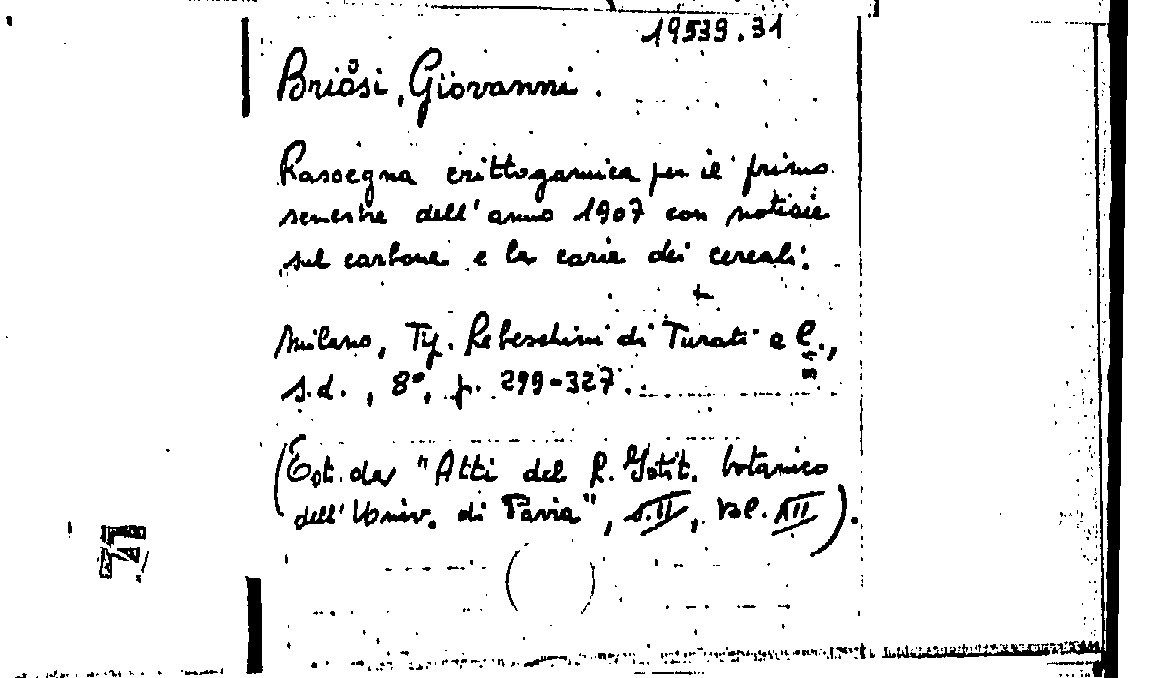 19539.31
Briosi, Giovanni.
Rassegna crittogamica per il primo
semestre dell'anno 1907 con notizie
sul carbone e la carie dei cereali.
Milano, Tip. Rebeschini di Turati e C.,
s.d., 8°, p. 299-327.
(Estr. da "Atti del R. Istit. botanico
dell'Univ. di Pavia", s.II, vol. XII).